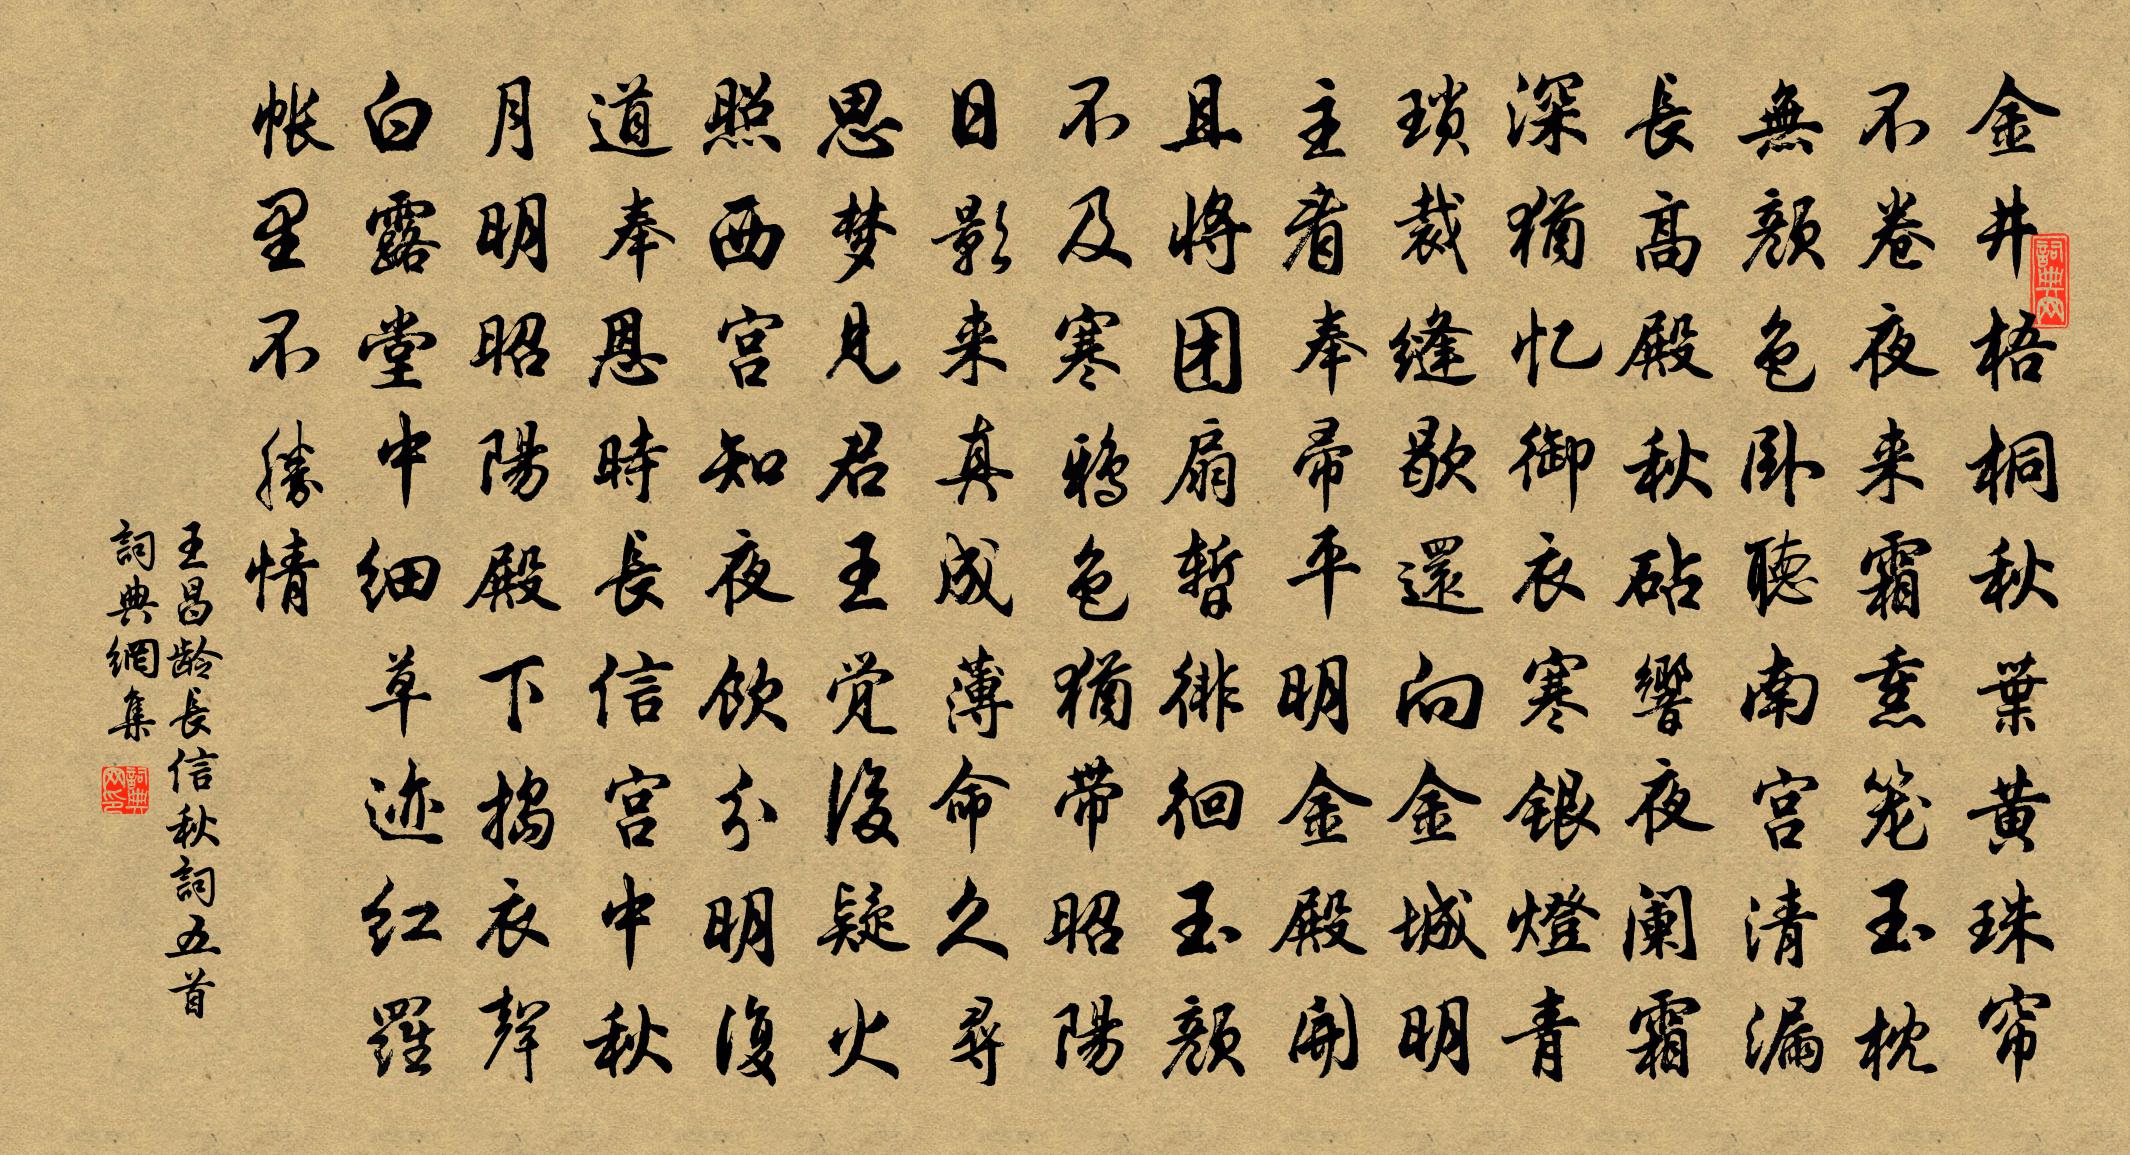 金井梧桐秋葉黄珠帘
不卷夜来霜熏笼玉枕
無颜色卧聽南宫清漏
長高殿秋砧響夜阑霜
深猶忆御衣寒银燈青
琐裁缝歇還向金城明
主看奉帚平明金殿開
且将团扇暂徘徊玉颜
不及寒鸦色猶带昭陽
日影来真成薄命久尋
思梦见君王觉後疑火
照西宫知夜饮分明復
道奉恩時長信宫中秋
月明昭陽殿下搗衣聲
白露堂中细草迹红羅
帐里不勝情
王昌龄長信秋詞五首
詞典網集
詞典网
詞典网印